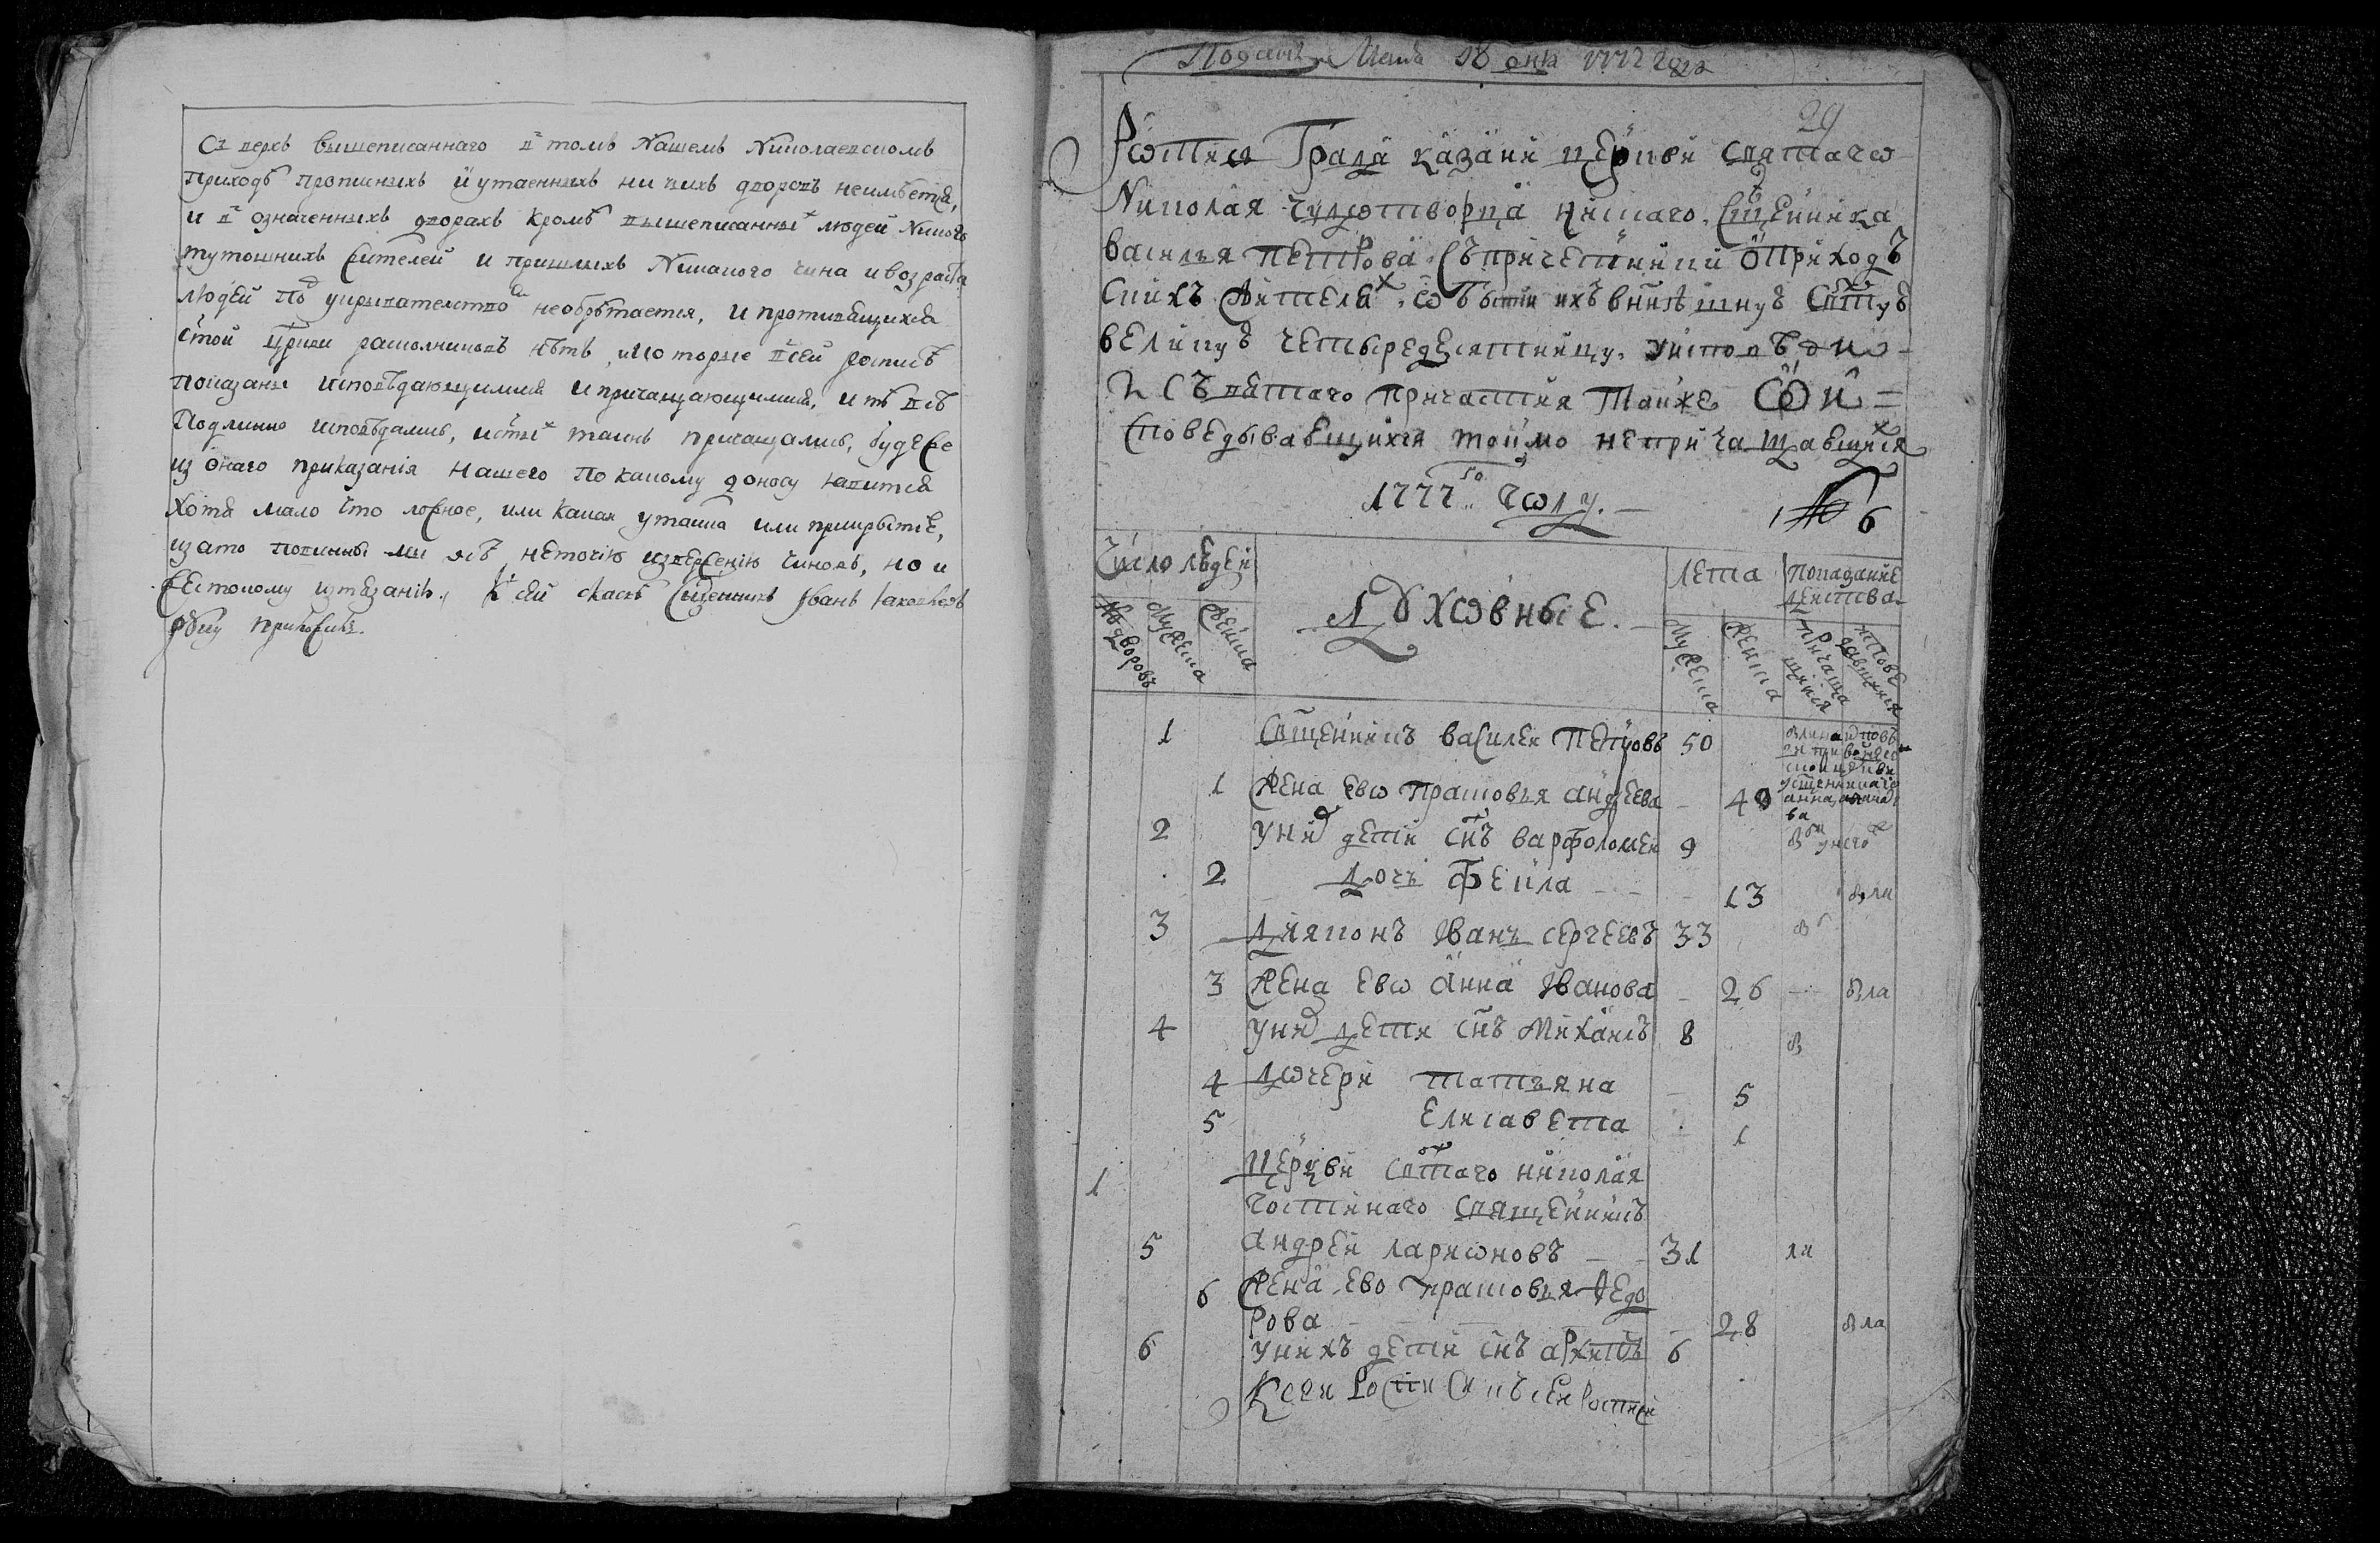 Съ верхъ вышеписаннаго в томъ Нашемъ Николаевскомъ
приходѣ прописныхъ и утаенныхъ ни чихъ дворовъ неимѣется,
и в означенныхъ дворахъ кромѣ вышеписанныхъ людей Никого
тутошнихъ жителей и пришлыхъ Никакого чина и возраста
людей под укрывателством необрѣтается, и противящихся
стой Цркви расколниковъ нѣтъ, которые в сей росписѣ
показаны исповѣдающимися и причащающимися, и тѣ всѣ
Подлинно исповѣдались, и стыхъ таинъ причащались, будеже
из онаго приказанія нашего по какому доносу явится
хотя мало что ложное, или какая утайка или прикрытіе,
и зато повинны мы всѣ неточію извержению чиновъ, но и
жестокому изтязанію. К сей скаскѣ Священникъ Иванъ Іаковлевъ
руку приложилъ.
Подана Маия 18 дня 1777 года
29
Роспись Града Казани церкви святаго
Николая чудотворца нискаго Священника
василья петрова Съпричетники оприход
скихъ жителех, обытии ихъ внынѣшнуѣ Стуѣ
великуѣ четыредесятницу, уисповѣди
и Съвятаго причастия также О и=
споведывавшихся токмо непричащавшихся
1777 го году.
6
Число людей
Духовные.
лета
показание
действа
№ дворовъ
Мужеска
Женска
Мужеска
Женска
Причащающияся
1 Священникъ василеи Петровъ 50
1 Жена ево прасковья андреева 40
2 у них дети снъ варфоломеи 9
2 Дочь Фекла 13 были
3 Дияконъ Иванъ сергеевъ 33 б
3 Жена ево анна Иванова 26 была
4 у них дети снъ михаилъ 8 б
4 дочери татьяна 5
5 елисавета 1
1 церкви святаго николая
гостинаго священникъ
5 андреи ларионовъ 31
6 Жена ево прасковья Федо
рова 28 была
6 унихъ дети снъ архипъ 6
К сеи Росписи